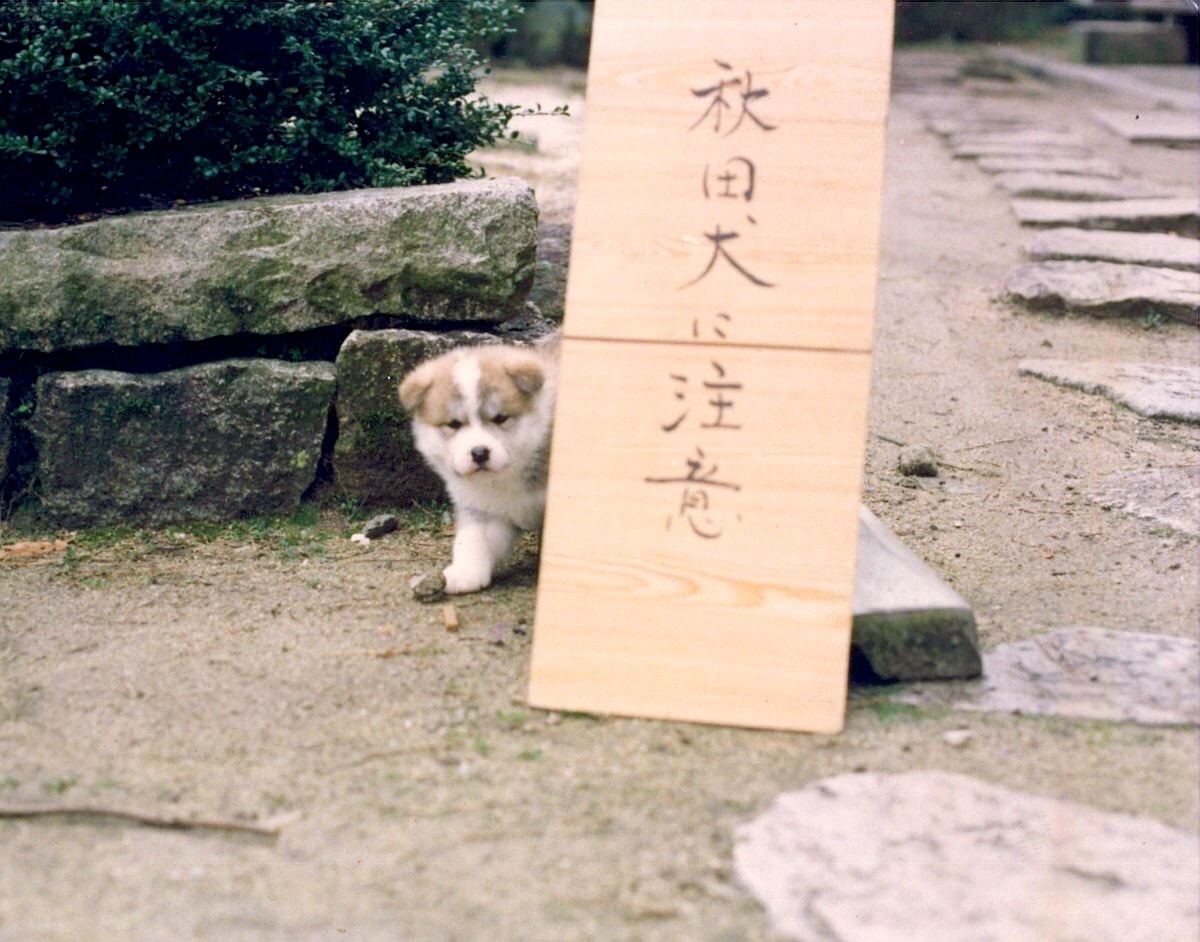 秋田犬に注意